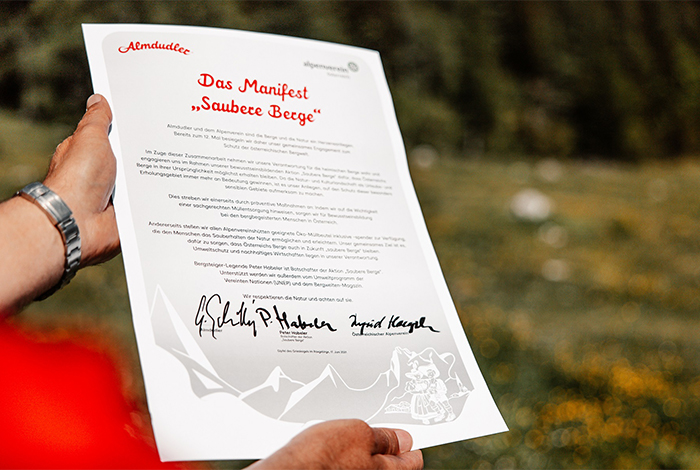 Almdudler
alpenverein
österreich
Das Manifest
„Saubere Berge“
Almdudler und dem Alpenverein sind die Berge und die Natur ein Herzensanliegen.
Bereits zum 12. Mal besiegeln wir daher unser gemeinsames Engagement zum
Schutz der österreichischen Bergwelt.
Im Zuge dieser Zusammenarbeit nehmen wir unsere Verantwortung für die heimischen Berge wahr und
engagieren uns im Rahmen unserer bewusstseinsbildenden Aktion „Saubere Berge“ dafür, dass Österreichs
Berge in ihrer Ursprünglichkeit möglichst erhalten bleiben. Da die Natur- und Kulturlandschaft als Urlaubs- und
Erholungsgebiet immer mehr an Bedeutung gewinnen, ist es unser Anliegen, auf den Schutz dieser besonders
sensiblen Gebiete aufmerksam zu machen.
Dies streben wir einerseits durch präventive Maßnahmen an, indem wir auf die Wichtigkeit
einer sachgerechten Müllentsorgung hinweisen, sorgen wir für Bewusstseinsbildung
bei den bergbegeisterten Menschen in Österreich.
Andererseits stellen wir allen Alpenvereinshütten geeignete Öko-Müllbeutel inklusive -spender zur Verfügung,
die den Menschen das Sauberhalten der Natur ermöglichen und erleichtern. Unser gemeinsames Ziel ist es,
dafür zu sorgen, dass Österreichs Berge auch in Zukunft „Saubere Berge“ bleiben.
Umweltschutz und nachhaltiges Wirtschaften liegen in unserer Verantwortung.
Bergsteiger-Legende Peter Habeler ist Botschafter der Aktion „Saubere Berge“.
Unterstützt werden wir außerdem vom Umweltprogramm der
Vereinten Nationen (UNEP) und dem Bergwelten-Magazin.
Wir respektieren die Natur und achten auf sie.
P. Habeler
Ingrid Hayek
Peter Habeler
Botschafter der Aktion
„Saubere Berge“
Österreichischer Alpenverein